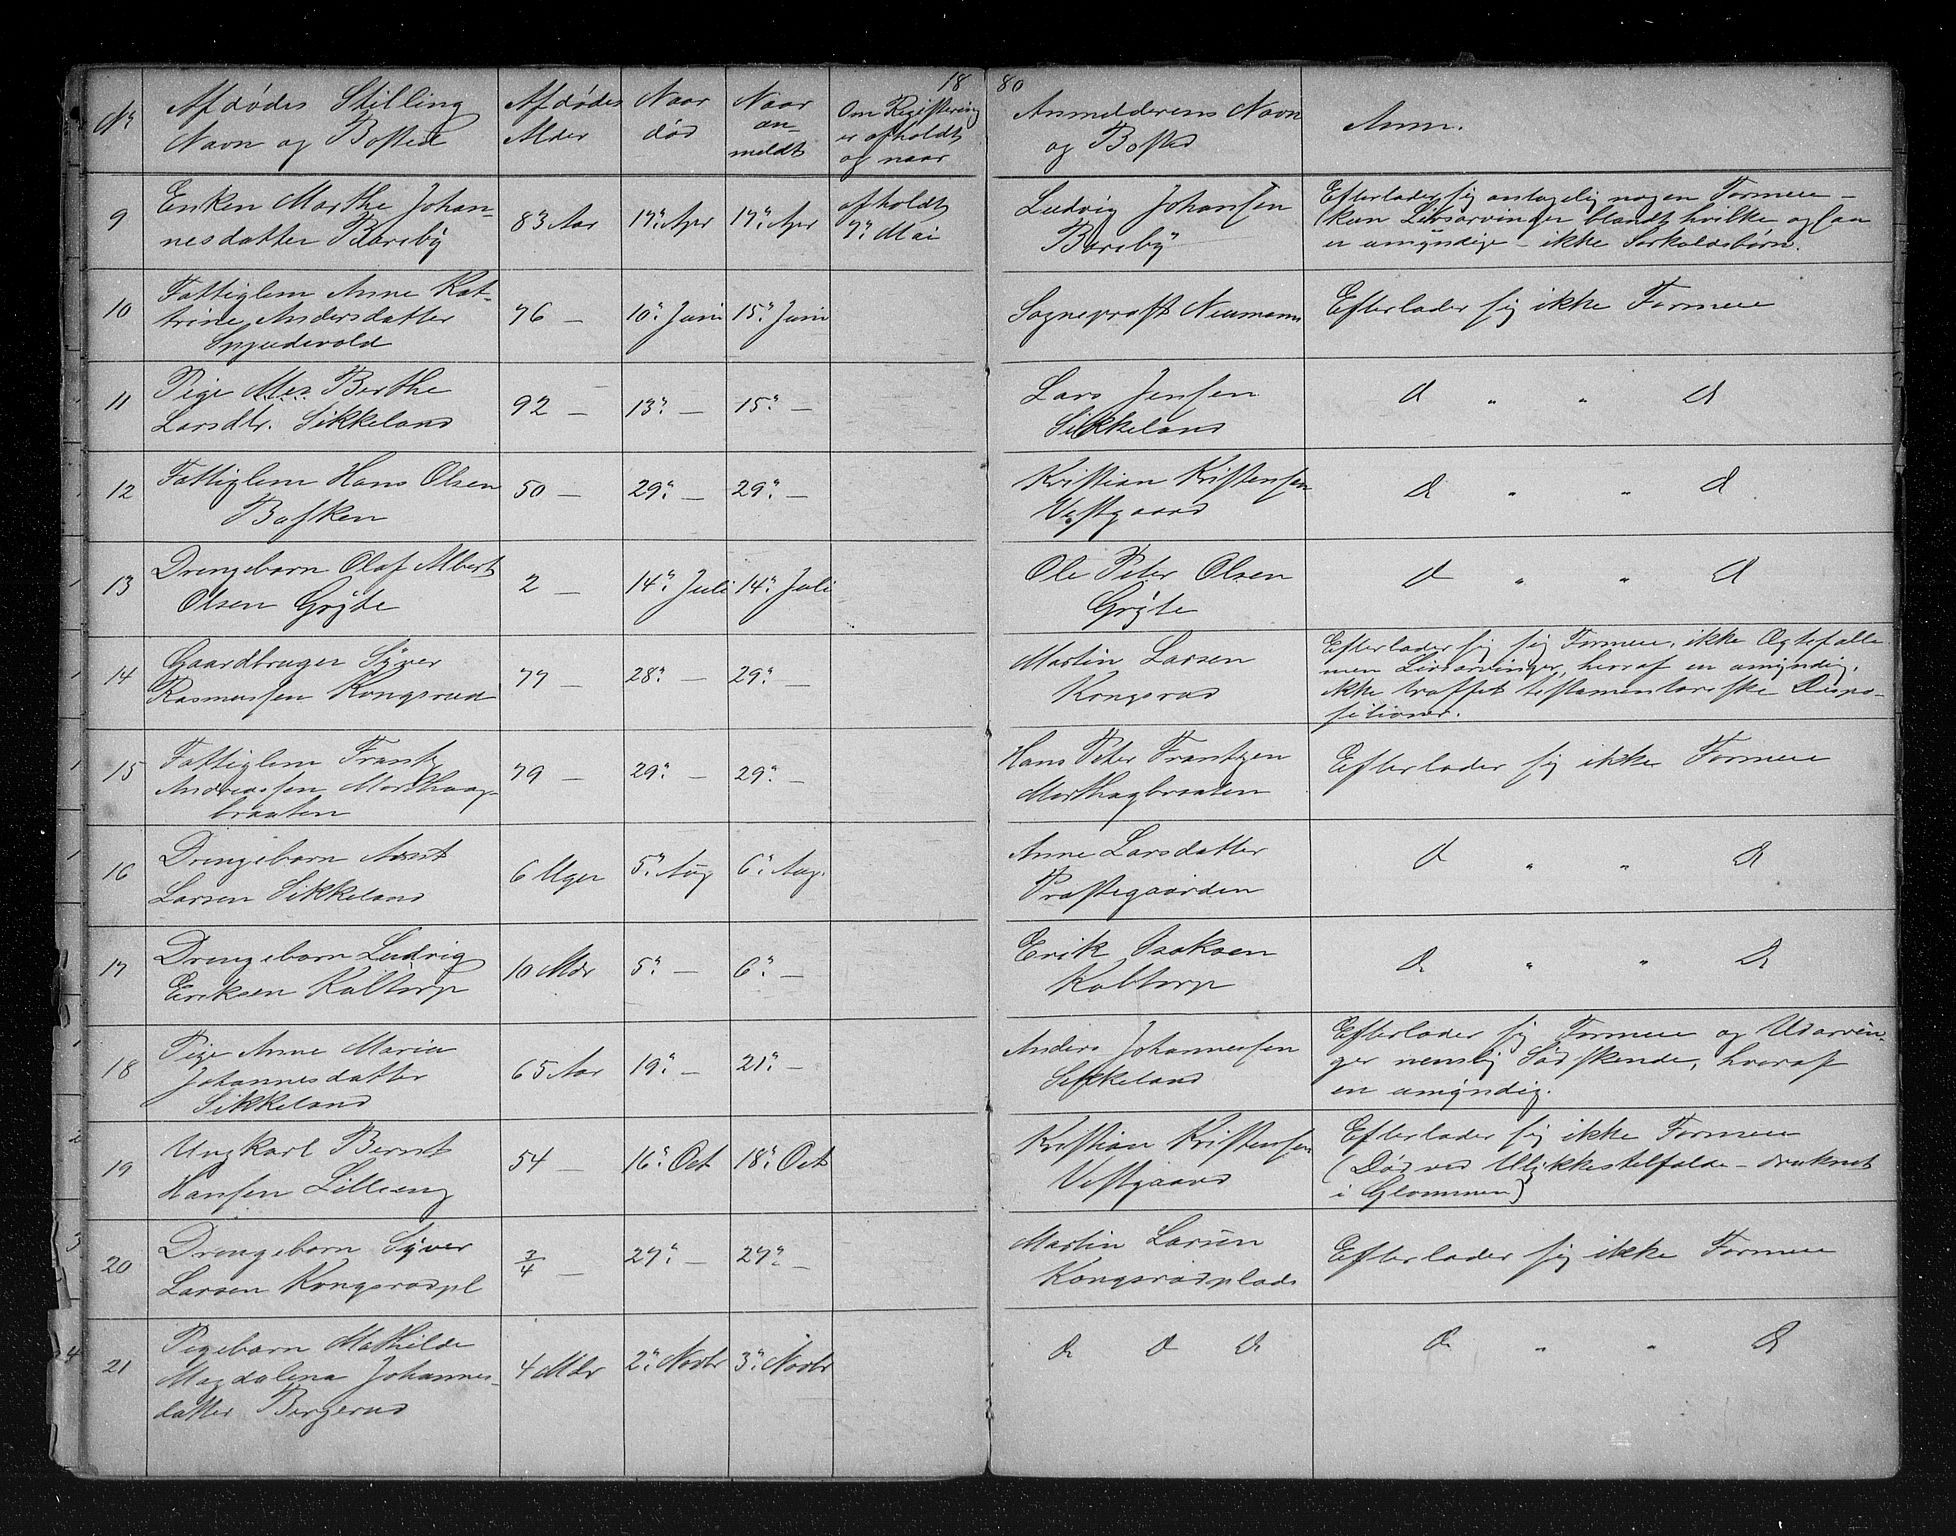 18 80
No
Afdødes Stilling
Navn og Bosted
Afdødes
Alder
Naar
død
Naar
an-
meldt
Om Registrering
er afholdt
og naar
Anmelderens Navn
og Bosted
Anm.
9
Enken Marthe Johan-
nesdatter Barsby
83 Aar
17. Apr
17. Apr
afholdt
7. Mai
Ludvig Johansen
Barsby
Efterlader sig antagelig nogen Formue –
kun Livsarvinger blandt hvilke ogsaa
er umyndige – ikke Særkuldsbørn.
10
Fattiglem Anne Kat-
trine Andersdatter
Spydevold
76 –
10. Juni
15. Juni
Sogneprest Neumann
Efterlader sig ikke Formue
11
Pige Berthe
Larsdtr. Sikkeland
92 –
13. –
15. –
Lars Jensen
Sikkeland
do " " do
12
Fattiglem Hans Olsen
Basken
50 –
29. –
29. –
Kristian Kristensen
Vestgaard
do " " do
13
Drengebarn Olaf Albert
Olsen Grøte
2
14. Juli
14. Juli
Ole Peter Olsen
Grøte
do " " do
14
Gaardbruger Syver
Rasmussen Kongsrud
77 –
28. –
29. –
Martin Larsen
Kongsrud
Efterlader sig sig Formue, ikke Ægtefælle
men Livsarvinger, herraf en umyndig.
ikke truffet testamentariske Dispo-
sitioner.
15
Fattiglem Frantz
Andreassen Morthaug-
braaten
79 –
29. –
29. –
Hans Peter Frantzen
Morthagbraaten
Efterlader sig ikke Formue
16
Drengebarn Arnt
Larsen Sikkeland
6 Uger
5. Aug
6. Aug.
Anne Larsdatter
Præstegaarden
do " " do
17
Drengebarn Ludvig
Eriksen Kaltorp
10 Mdr
5. –
6. –
Erik Isaksen
Kaltorp
do " " do
18
Pige Anne Maria
Johannesdatter
Sikkeland
65 Aar
19. –
21. –
Anders Johannessen
Sikkeland
Efterlader sig Formue og Udarvin-
ger nemlig Sødskende, hvoraf
en umyndig.
19
Ungkarl Bernt
Hansen Lilleeng
54 –
16. Oct
18. Oct
Kristian Kristensen
Vestgaard
Efterlader sig ikke Formue
(Død ved Ulykkestilfælde – druknet
i Glommen)
20
Drengebarn Syver
Larsen Kongsrudpl
3/4 –
27. –
27. –
Martin Larsen
Kongsrudplads
Efterlader sig ikke Formue
21
Pigebarn Mathilde
Magdalena Johannes-
datter Bergerud
4 Mdr
2. Novbr
3. Novbr
do do do
do " " do